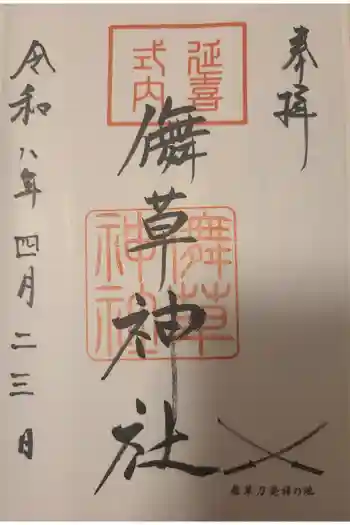 奉拝
延喜
式内
儛草神社
舞草
神社
令和八年四月二三日
舞草刀発祥の地